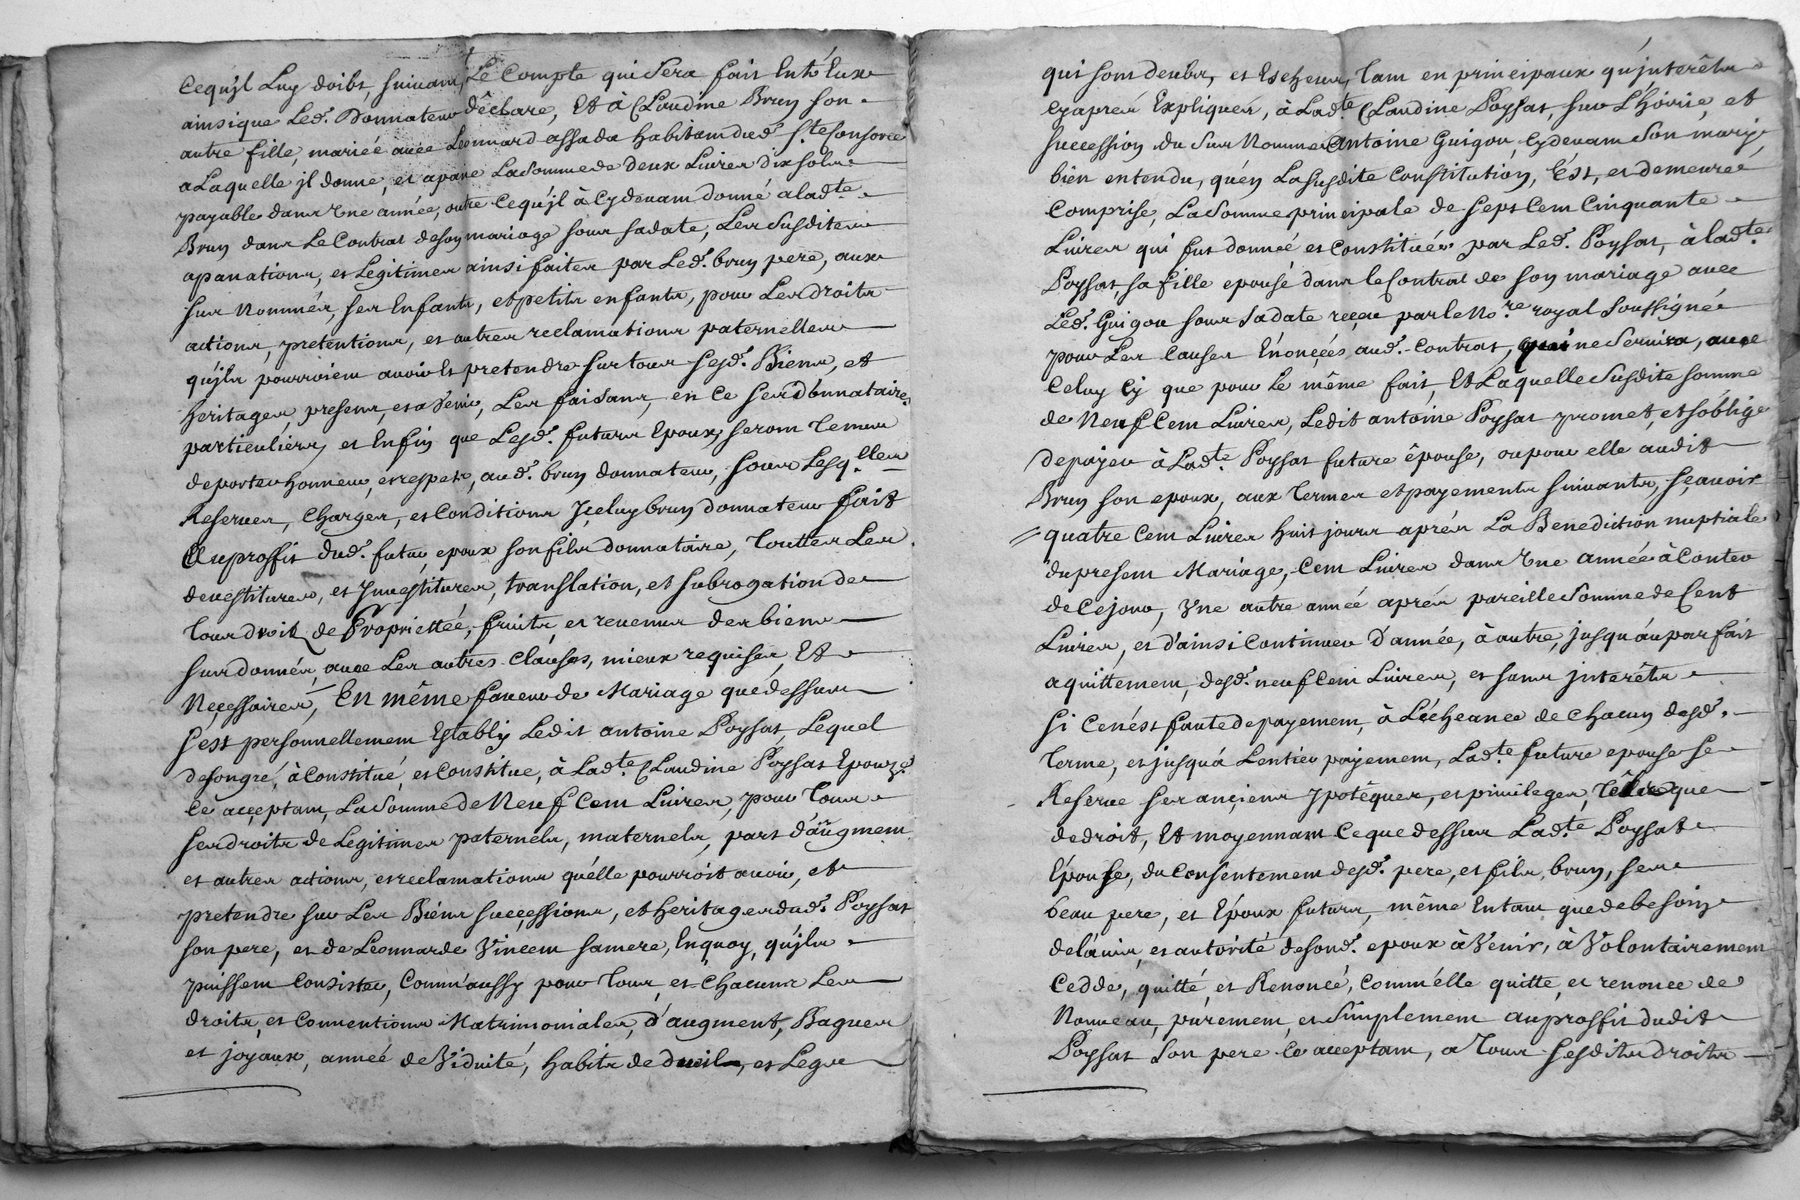 cequ'jl Luy doibt, suivant Le Compte qui Sera fait Entr'Eux
ainsique Led. Donnateur déclare, Et à Claudine Brun son
autre fille, mariée avec Léonnard assada habitant dud. St
a Laquelle jl donne, et apane La Somme de deux Livres dix sols
payable dans une année, outre cequ'jl à Cydevant donné alad.te
Brun dans Le Contrat de son mariage sous sa date, Les Susdittes
apanations, et Legitimes ainsi faites par Led. brun pere, aux
sus Nommés, ses Enfants, et petits enfants, pour Les droits
actions, pretentions, et autres reclamations paternelles
qu'jls pourroient avoir et pretendre sur tous sesd. Biens, et
heritages, presens, et a Venir, Les faisant, en ce ses donnataires
particuliers, et Enfin que Lesd. futurs Epoux, seront Tenus
de porter honneur, et respet, aud. brun donnateur, sous Lesq.lles
Reserves, Charges, et Conditions Jceluy brun donnateur fait
Au proffit dud. futur epoux son fils donnataire, Touttes Les
devestitures, et Jnvestitures, translation, et subrogation de
Tous droits de Propriettée, fruits et revenus des biens
sus donnés, avec Les autres Clauses, mieux requises, Et
Necessaires, En même faveur de Mariage que dessus
s'est personnellement Establi Ledit antoine Poysat, Lequel
de son gré, à Constitué, et Constitue, à Lad.te Claudine Poysat Epouze
Ce acceptant, La Somme de Neuf Cent Livres, pour Tous
ses droits de Legitimes paternels, maternels, part d'augment
et autres actions, et reclamations qu'elle pourroit avoir, et
pretendre sur Les Biens successions, et heritages dud. Poysat
son pere, et de Léonnarde Vincent sa mere, En quoy, qu'jls
puissent Consister, Comm'aussy pour Tous, et Chacuns Les
droits, et Conventions Matrimoniales, d'augment, Bagues
et joyaux, année de Viduité, habits de dueil, et Legs
qui sont deubs, et Escheus, Tant en principaux qu'jnterêts
Cyaprés Expliqués, à Lad.te Claudine Poysat, sur L'hoirie, et
succession du Sus Nommé Antoine Guigou, Cydevant Son mary,
bien entendu, qu'en La susdite Constitution, Est, et demeure
Comprise, La Somme principale de sept Cent Cinquante
Livres qui fut donnée et constituée par Led. Poysat, à lad.te
Poysat, sa fille epouse dans le Contrat de son mariage avec
Led. Guigou sous Sa date reçeu par le No.re royal Soussigné
pour Les Causes Enoncées aud. Contrat, qui ne Servira, avec
Celuy Cy que pour Le même fait, Et Laquelle Susdite somme
de Neuf Cent Livres, Ledit antoine Poysat promet, et s'oblige
de payer à Lad.te Poysat future épouse, ou pour elle audit
Brun son epoux, aux Termes et payements suivants, sçavoir
quatre Cent Livres huit jours aprés La Benediction nuptiale
du present Mariage, Cent Livres dans Une année à Conter
de Cejour, Une autre année aprés pareille Somme de Cent
Livres, et d'ainsi Continuer d'année, à autre, jusqu'au parfait
aquittement, desd. neuf Cent Livres, et sans jnterêts
si Ce n'est faute de payement, à L'écheance de chacun desd.
Terme, et jusqu'à L'entier payement, Lad.te future epouse se
Reserve ses anciens Jpotéques, et privileges, Tels que
de droit, Et moyennant Ceque dessus Lad.te Poysat
Epouse, du Consentement desd. pere, et fils, brun, ses
beau pere, et Epoux futurs, même Entant que de besoin
de l'avis, et autorité de sond. epoux à Venir, à Volontairement
Cedde, quitté, et Renoncé, Comm'elle quitte, et renonce de
Nouveau, purement, et Simplement au proffit dudit
Poysat Son pere ce acceptant, a Tous Sesdits droits